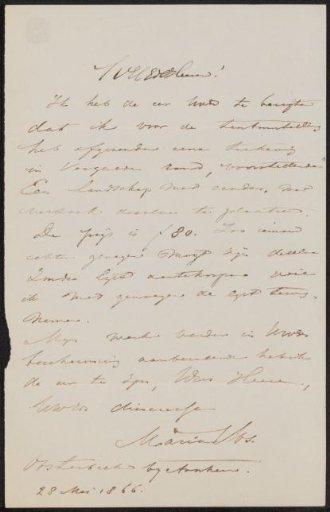 WelEdHeer!
Ik heb de eer UwEd te berigten
dat ik voor de tentoonstelling
heb afgezonden eene tekening
in vergulde rand, voorstellende
Een Landschap met eenden, met
verzoek dezelve te plaatsen.
De prijs is ƒ 80. Zoo iemand
echter genegen mogt zijn dezelve
zonder lijst aantekoopen
ik met genoegen de lijst terug
nemen.
Mijn werk verder in UwEds
bescherming aanbevelende heb ik
de eer te zijn, WelEd Heer,
UwEds dienaresse
Maria Vos.
Oosterbeek bij Arnhem.
28 Mei 1866.